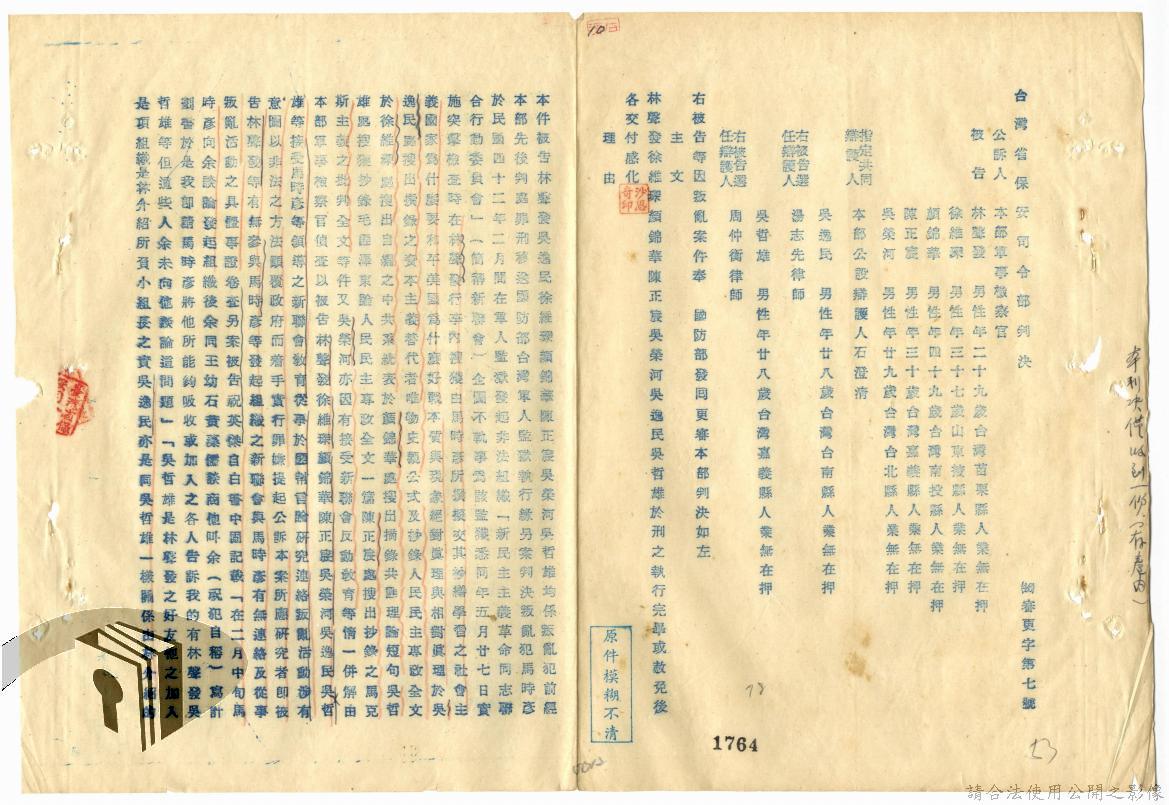 台灣省保安司令部判決
(44)審更字第七號
公訴人　本部軍事檢察官
被告　林聲發　男性年二十九歲台灣苗栗縣人業無在押
徐維琛　男性年三十七歲山東棲縣人業無在押
顏錦華　男性年四十九歲台灣南投縣人業無在押
陳正宸　男性年三十歲台灣嘉義縣人業無在押
吳榮河　男性年廿九歲台灣台北縣人業無在押
指定共同辯護人　本部公設辯護人石澄清
吳逸民　男性年廿八歲台灣台南縣人業無在押
右被告選任辯護人　湯志先律師
吳哲雄　男性年廿八歲台灣嘉義縣人業無在押
右被告選任辯護人　周仲衡律師
右被告等因叛亂案件奉　國防部發回更審本部判決如左
主文
林聲發徐維琛顏錦華陳正宸吳榮河吳逸民吳哲雄於刑之執行完畢或赦免後
各交付感化
理由
本件被告林聲發吳逸民徐維琛顏錦華陳正宸吳榮河吳哲雄均係叛亂犯前經
本部先後判處罪刑移送國防部台灣軍人監獄執行緣另案判決叛亂犯馬時彥
於民國四十二年二月間在軍人監獄發起非法組織「新民主主義革命同志聯
合行動委員會」(簡稱新聯會)企圖不軌事為該監獲悉同年五月廿七日實
施突擊檢查時在林聲發行李內搜獲由馬時彥所撰授交其抄繕學習之社會主
義國家為什麼要和平美國為什麼好戰本質與現象絕對真理與相對真理於吳
逸民處搜出摸錄之資本主義替代者唯物史觀公式及抄錄人民民主專政全文
於徐維琛處搜出自製之中共系統表於顏錦華處搜出摘錄共匪理論短句吳哲
雄處搜獲抄錄毛匪澤東論人民民主專政全文一篇陳正宸處搜出抄錄之馬克
斯主義之批判全文等件又吳榮河亦因有接受新聯會反動教育等情一併解由
本部軍事檢察官偵查以被告林聲發徐維琛顏錦華陳正宸吳榮河吳逸民吳哲
雄等接受馬時彥等領導之新聯會教育從事於團結言論研究連絡叛亂活動涉有
意圖以非法之方法顛覆政府而着手實行罪嫌提起公訴本案所應研究者即被
告林聲發等有無參與馬時彥等發起組織之新聯會與馬時彥有無連絡及從事
叛亂活動之具體事證卷查另案被告祝英傑自白書中固記載「在二月中旬馬
時彥向余談論發起組織後余同王幼石黃藻儒談商他叫余(祝犯自稱)寫計
劃書於是我即請馬時彥將他所能夠吸收或加入之各人告訴我的有林聲發吳
哲雄等但這些人余未向他談論這問題」「吳哲雄是林聲發之好友他之加入
是項組織是林介紹所負小組長之責吳逸民亦是同吳哲雄一樣關係由林介紹的
原件模糊不清
1764
10
73
請合法使用公開之影像